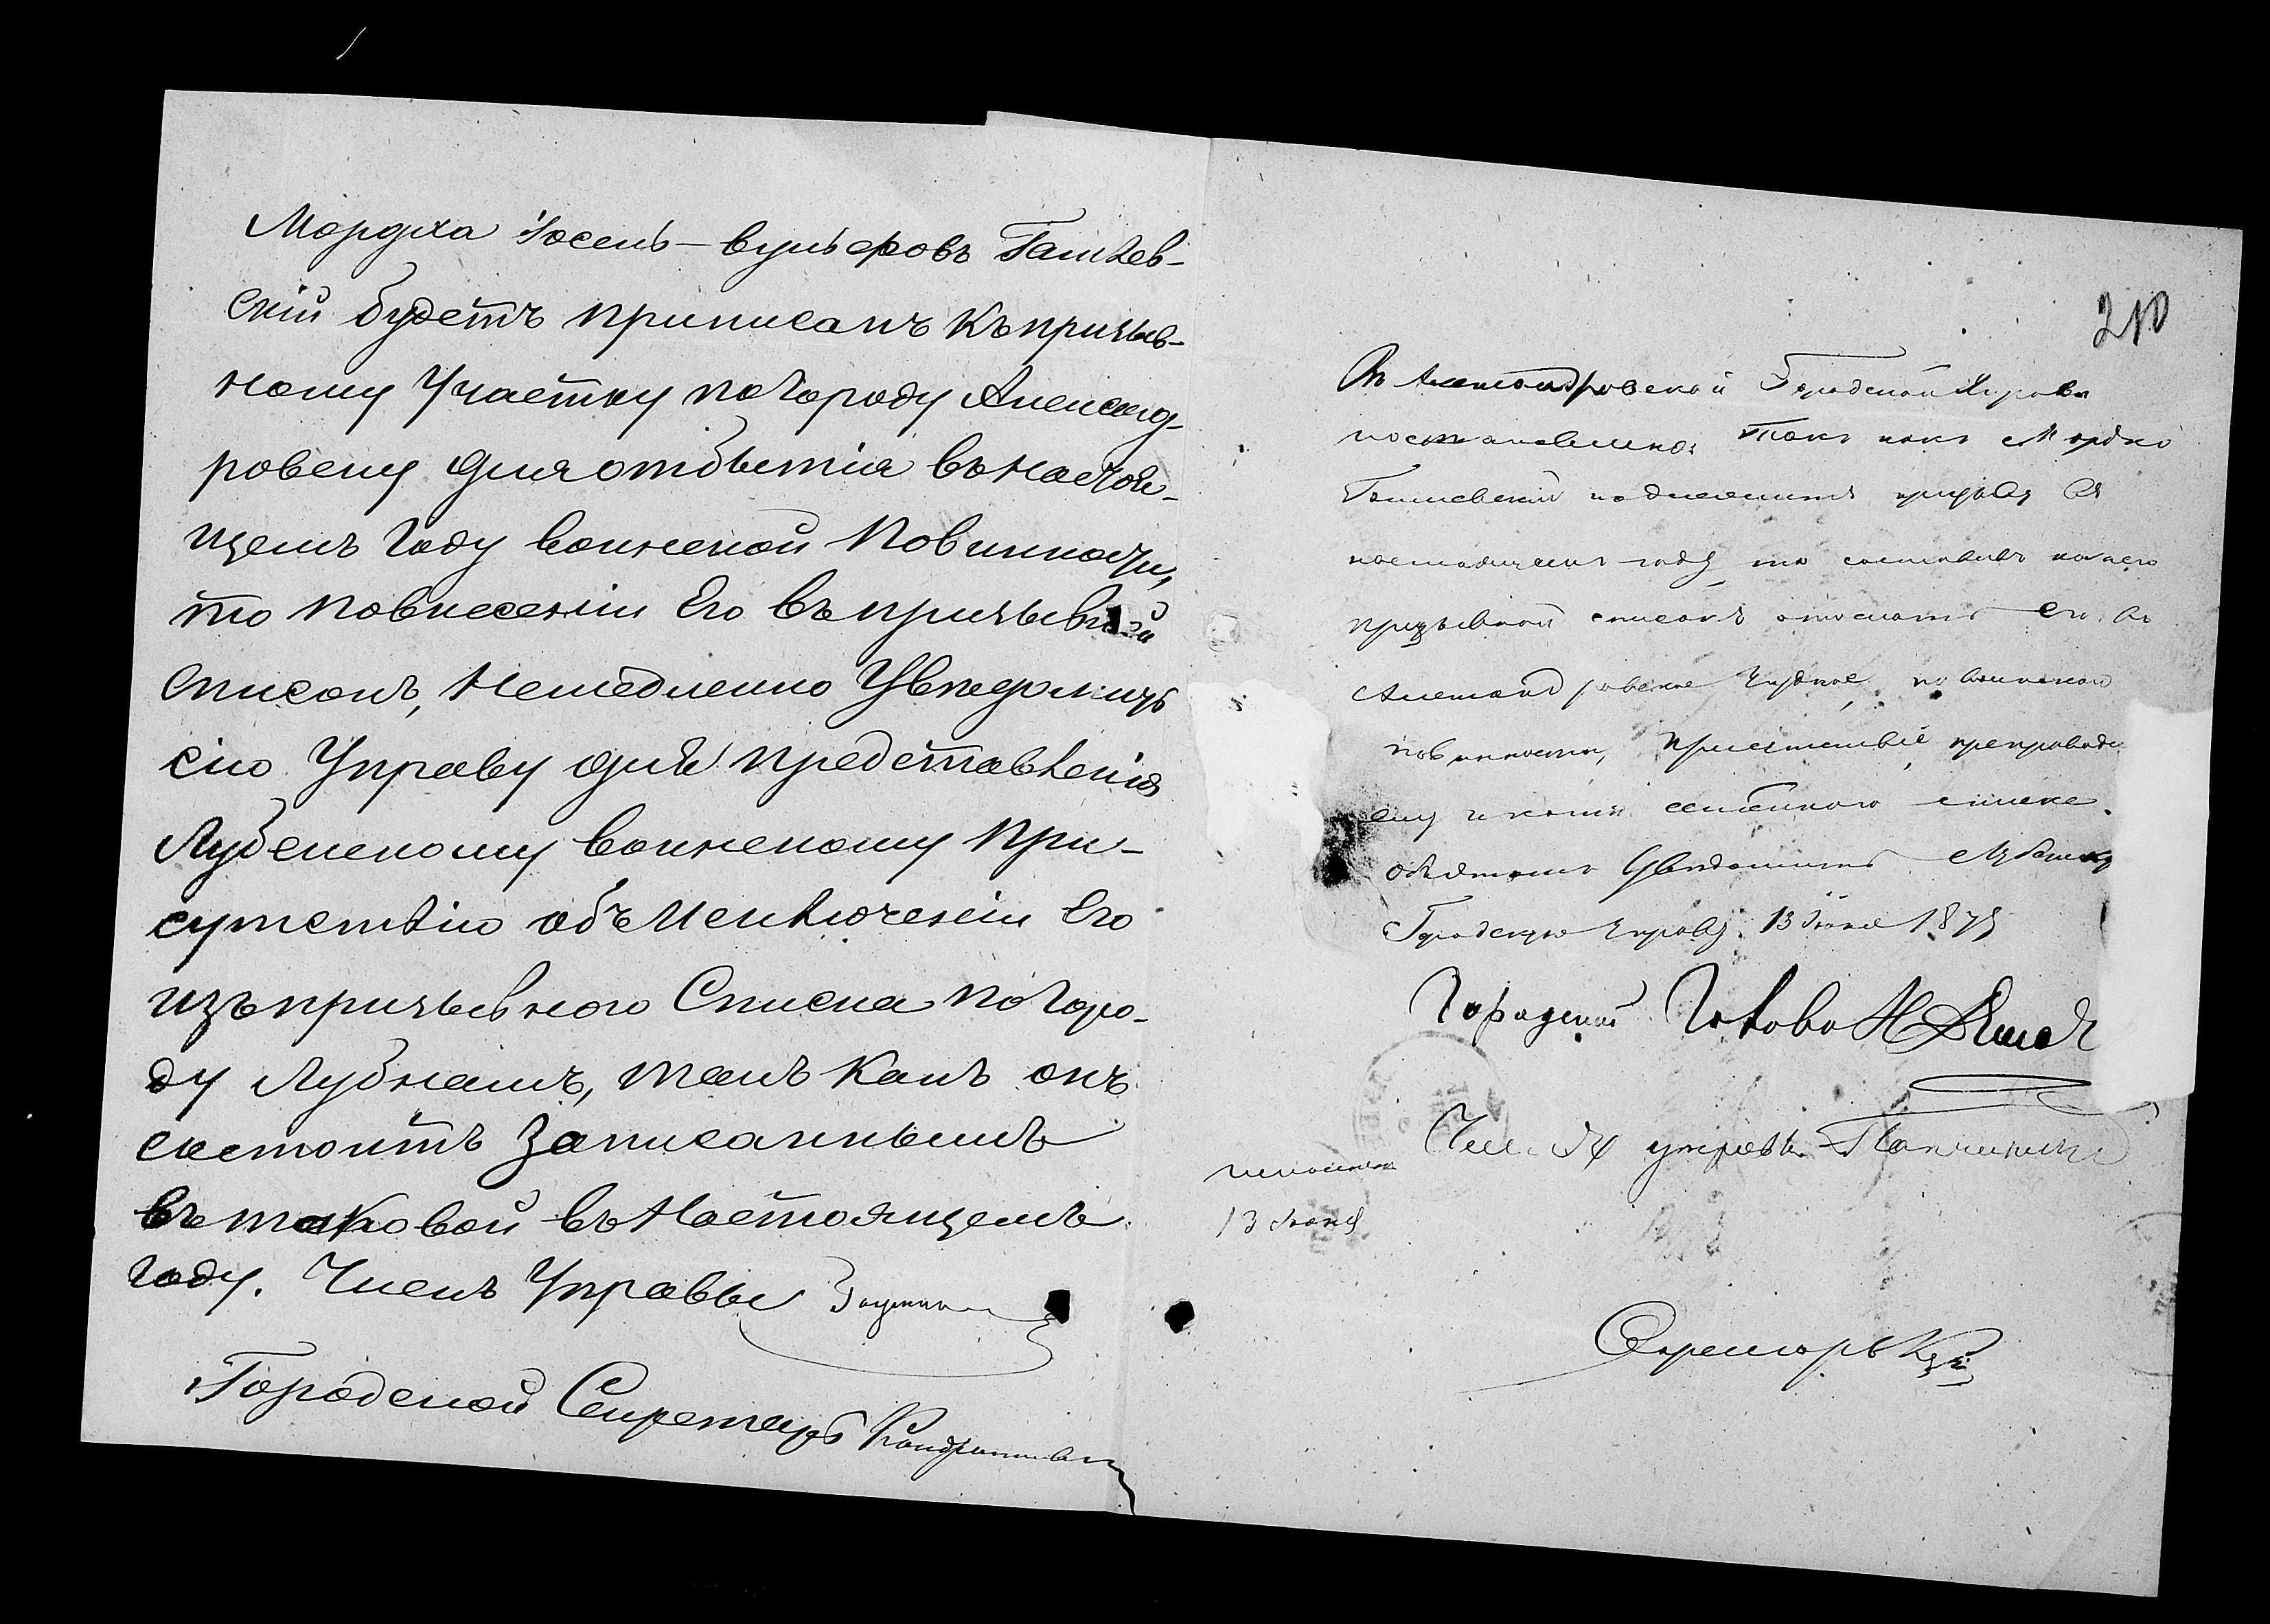 Мордха Іосель-вульфовъ Гашев-
скій будетъ приписанъ къ призыв-
ному Участку по городу Александ-
ровску для отбытія въ настоя-
щемъ году воинской повинности,
то по внесеніи Его въ призывной
списокъ, немедленно Увѣдомить
сію Управу для представленія
Лубенскому воинскому при-
сутствію объ исключеніи Его
изъ призывного Списка по горо-
ду Лубнамъ, такъ какъ онъ
состоитъ записаннымъ
въ таковой въ настоящемъ
году. Членъ Управы
Городской Секретарь
210
Въ Александровской Городской Управѣ
постановлено: Такъ какъ Мордко
Гашевскій подлежитъ призыву въ
настоящемъ году, то составивъ на него
призывной списокъ отослать Его въ
Александровское Уѣздное по воинской
повинности, присутствіе, препроводи
ему и копію семейного списка.
объ этомъ Увѣдомить Лубенскую
Городскую Управу. 13 Іюня 1875
Городской Голова Н
Чл. Гор управы
исполнен
13 Іюня
Секретарь